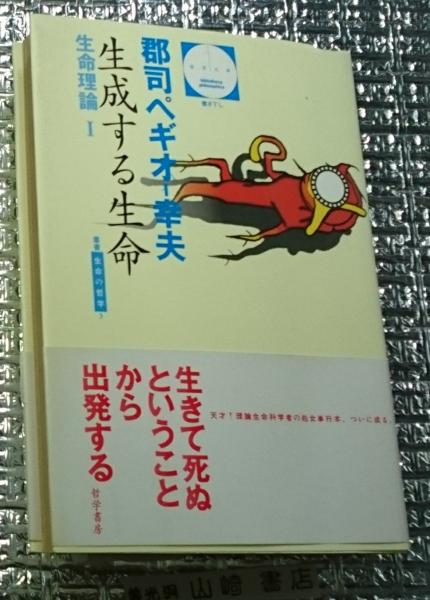 郡司ペギオ幸夫
生成する生命
生命理論 I
書き下し
叢書 生命の哲学 3
生きて死ぬ
ということ
から
出発する
哲学書房
天才!理論生命科学者の処女単行本、ついに成る。
山崎 書店